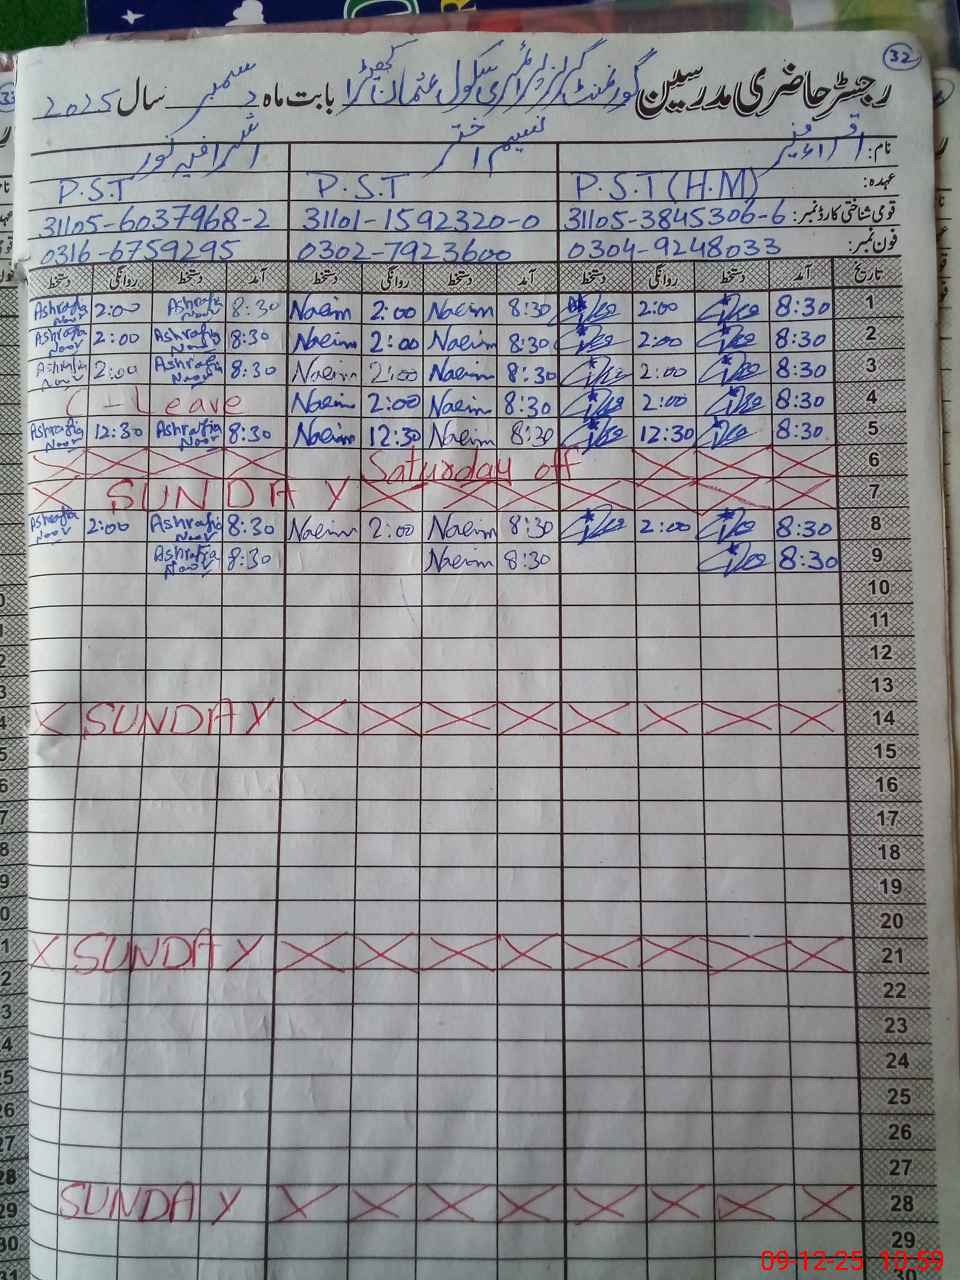 32
رجسٹر حاضری مدرسین گورنمنٹ گرلز پرائمری سکول عثمان کھیڑا بابت ماہ دسمبر سال 2025
نام: اقراء منیر نسیم اختر اشرافیہ نور
عہدہ: P.S.T (H.M) P.S.T P.S.T
قومی شناختی کارڈ نمبر: 31105-3845306-6 31101-1592320-0 31105-6037968-2
فون نمبر: 0304-9248033 0302-7923600 0316-6759295
تاریخ آمد دستخط روانگی دستخط آمد دستخط روانگی دستخط آمد دستخط روانگی دستخط
1 8:30 2:00 8:30 Naeim 2:00 Naeim 8:30 Ashrafia Noor 2:00 Ashrafia Noor
2 8:30 2:00 8:30 Naeim 2:00 Naeim 8:30 Ashrafia Noor 2:00 Ashrafia Noor
3 8:30 2:00 8:30 Naeim 2:00 Naeim 8:30 Ashrafia Noor 2:00 Ashrafia Noor
4 8:30 2:00 8:30 Naeim 2:00 Naeim C-Leave
5 8:30 12:30 8:30 Naeim 12:30 Naeim 8:30 Ashrafia Noor 12:30 Ashrafia Noor
6 Saturday off
7 SUNDAY
8 8:30 2:00 8:30 Naeim 2:00 Naeim 8:30 Ashrafia Noor 2:00 Ashrafia Noor
9 8:30 8:30 Naeim 8:30 Ashrafia Noor
10
11
12
13
14 SUNDAY
15
16
17
18
19
20
21 SUNDAY
22
23
24
25
26
27
28 SUNDAY
29
30
09-12-25 10:59